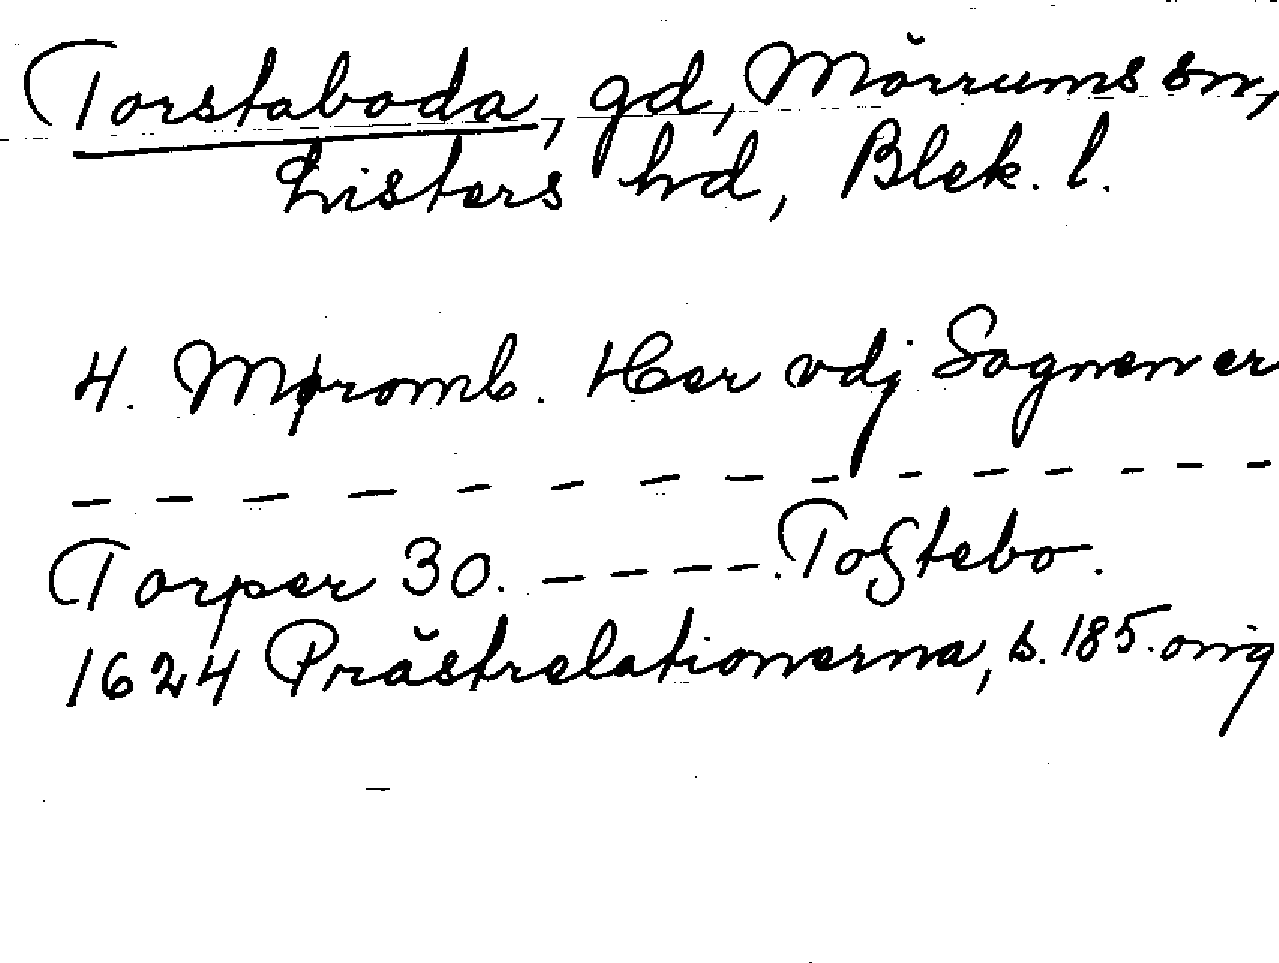 Torstaboda, gd, Mörrums sn,
Listers hd, Blek. l.
4. Møromb. Her vdj Sognen er
— — — — — — — — — — — — — —
Torper 30. — — — — . Toſtebo.
1624 Prästrelationerna, s. 185. orig